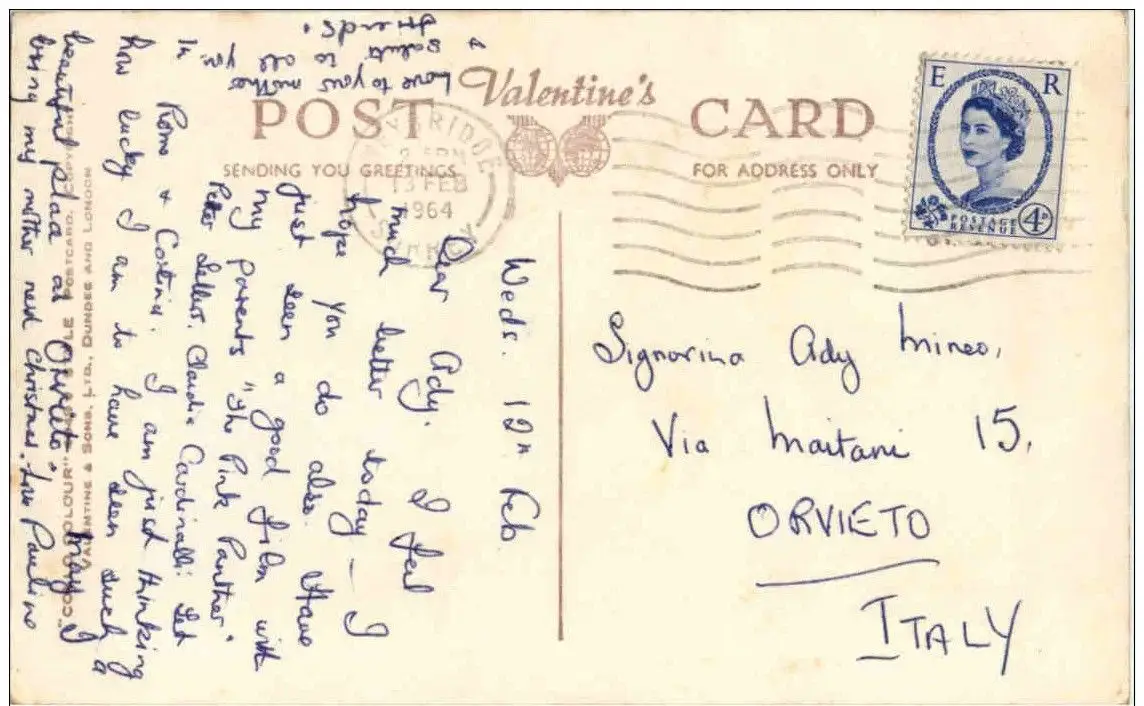 Valentine's
POST CARD
SENDING YOU GREETINGS
FOR ADDRESS ONLY
E R
POSTAGE
REVENUE
4D
13 FEB
1964
SURREY
Weds. 12th Feb.
Dear Ady. I feel
much better today — I
hope you do also. Have
just seen a good film with
my parents "The Pink Panther".
Peter Sellers. Claudia Cardinalli: Set
in Rome & Cortina. I am just thinking
how lucky I am to have seen such a
beautiful place as Orvieto. May I
bring my mother next Christmas. Love Pauline
Love to your mother
& saluti to all yr.
friends.
Signorina Ady Mineo,
Via Maitani 15,
ORVIETO
ITALY
POSTCARD.
VALENTINE & SONS, LTD., DUNDEE AND LONDON